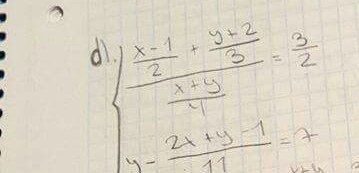 d). { ((x-1)/2 + (y+2)/3) / ((x+y)/4) = 3/2
y - (2x+y-1)/11 = 7